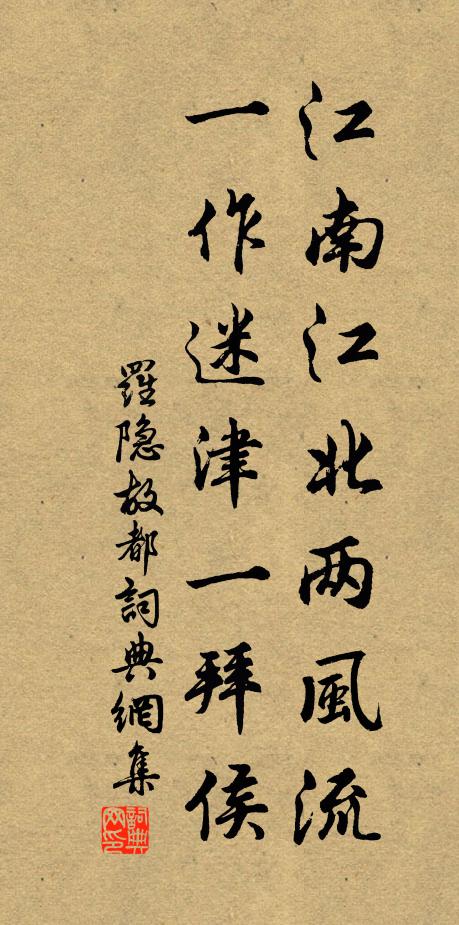 江南江北两風流
一作迷津一拜侯
羅隐故都詞典網集
詞典网印